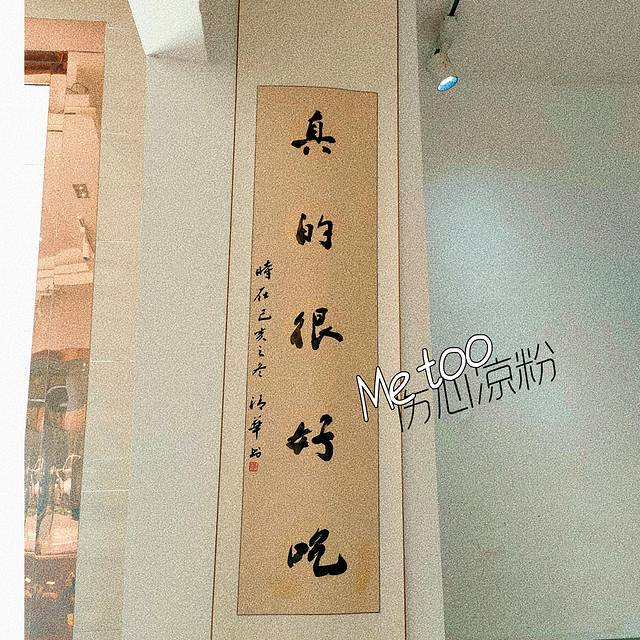 真的很好吃
時在己亥之冬 清華書
Me too
伤心凉粉